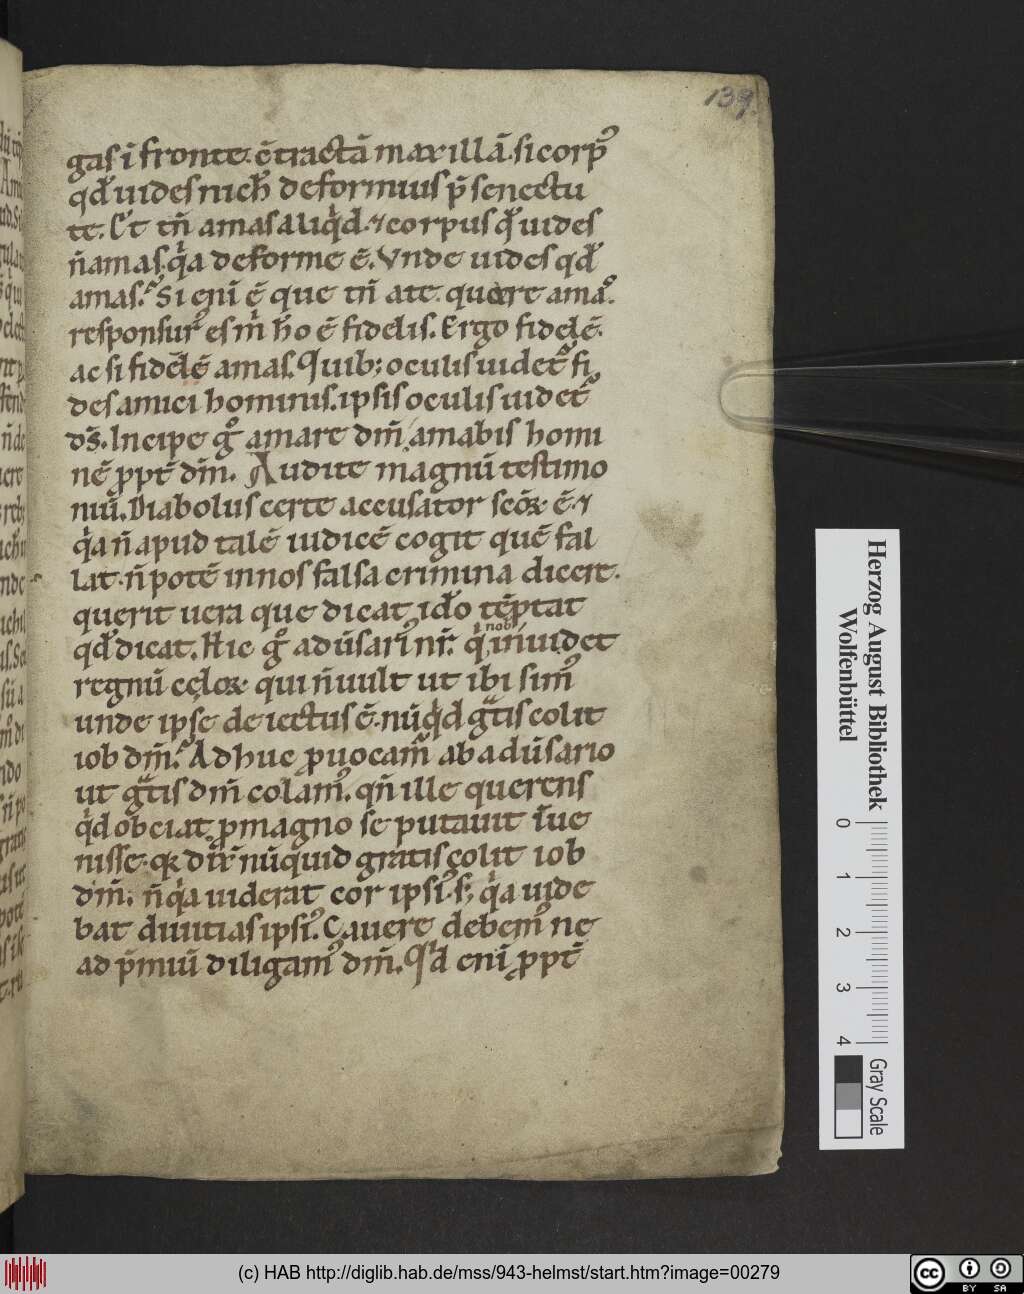 139.
gas ī fronte. ētractā maxillā. si corp᷒
qđ uides nich̄ deformius p̄ senectu
te. Et tn̄ amas aliqͥd. ⁊ corpus qđ uides
n̄ amas. qͥa deforme ē. Vnde uides qđ
amas? Si enī ē que tn̄ a te. quere amaº.
responsur᷒ es m̄ ho ē fidelis. Ergo fidelē.
ac si fidelē amas. Quib; oculis uidet᷒ fi
des amici hominus. ipsis oculis uidet᷒
ds̄. Incipe gͦ amare dm̄ amabis homi
nē ꝓpt̄ dm̄. Audite magnū testimo
niū. Diabolus certe accusator scōꝝ ē. ⁊
qͥa n̄ apud talē iudicē cogit quē fal
lat. n̄ potē in nos falsa crimina dicere.
querit uera que dicat. idō tēptat
qđ dicat. Hic gͦ adūsari᷒ nr̄. qͥ nob inuidet
regnū celoꝝ qui n̄ uult ut ibi sim᷒
unde ipse deiectus ē. nūqͥd gͣtis colit
iob dm̄? Adhuc ꝓuocam̄ ab adūsario
ut gͣtis dm̄ colam᷒. qn̄ ille querens
qͥd obciat. ꝓ magno se putauit īue
nisse. qꝝ dir̄ nūquid gratis colit iob
dm̄; n̄ qͥa uiderat cor ipsi᷒. s; qͥa uide
bat diuitias ipsi᷒. Cauere debem᷒ ne
ad p̄miū diligam᷒ dm̄. Qͥd enī ꝓpt̄
Herzog August Bibliothek
Wolfenbüttel
0 1 2 3 4
Gray Scale
(c) HAB http://diglib.hab.de/mss/943-helmst/start.htm?image=00279
cc BY SA